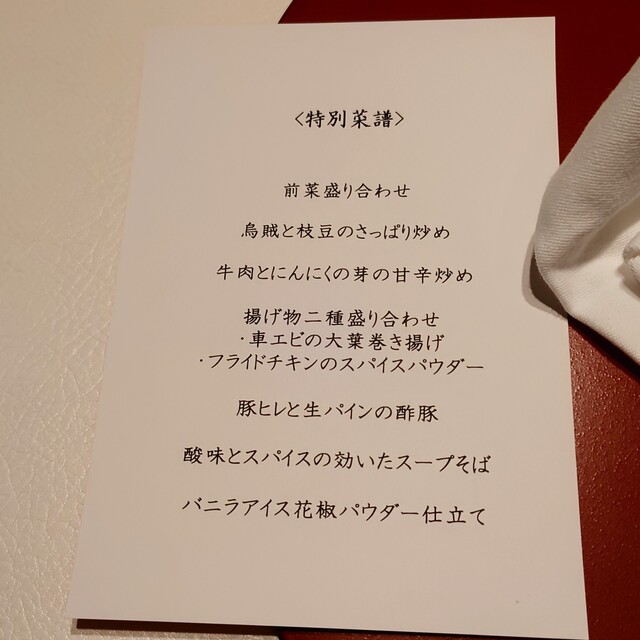 <特別菜譜>
前菜盛り合わせ
烏賊と枝豆のさっぱり炒め
牛肉とにんにくの芽の甘辛炒め
揚げ物二種盛り合わせ
・車エビの大葉巻き揚げ
・フライドチキンのスパイスパウダー
豚ヒレと生パインの酢豚
酸味とスパイスの効いたスープそば
バニラアイス花椒パウダー仕立て